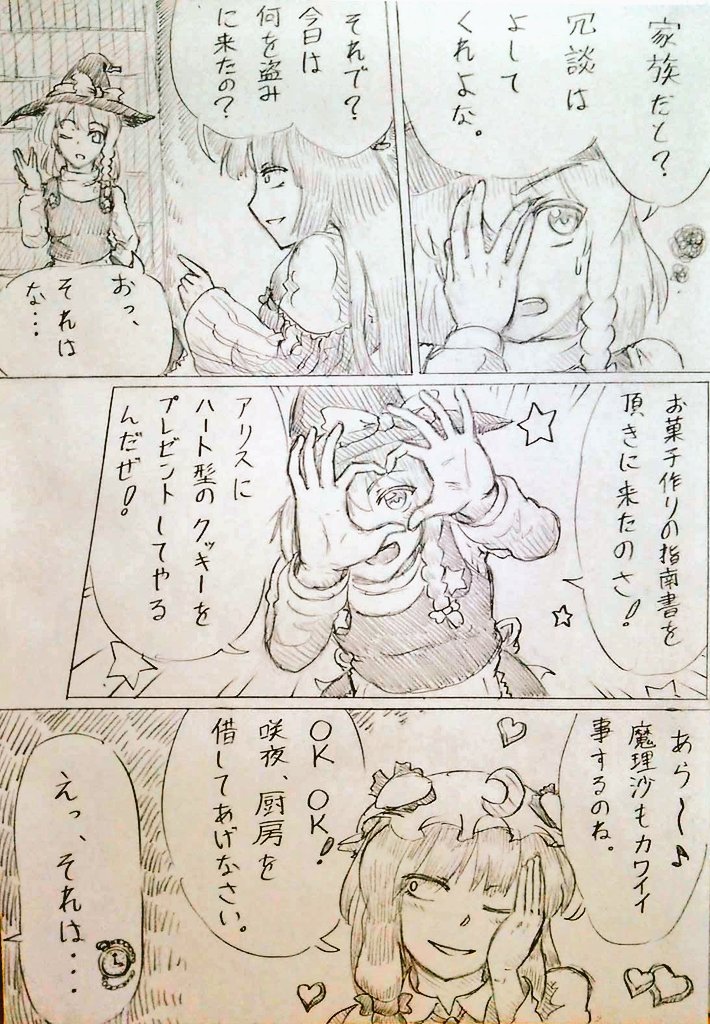 家族だと?
冗談は
よして
くれよな。
それで?
今日は
何を盗み
に来たの?
おっ、
それは
な・・・
お菓子作りの指南書を
頂きに来たのさ!
アリスに
ハート型のクッキーを
プレゼントしてやる
んだぜ!
あら〜♪
魔理沙もカワイイ
事するのね。
OK OK!
咲夜、厨房を
借してあげなさい。
えっ、それは・・・